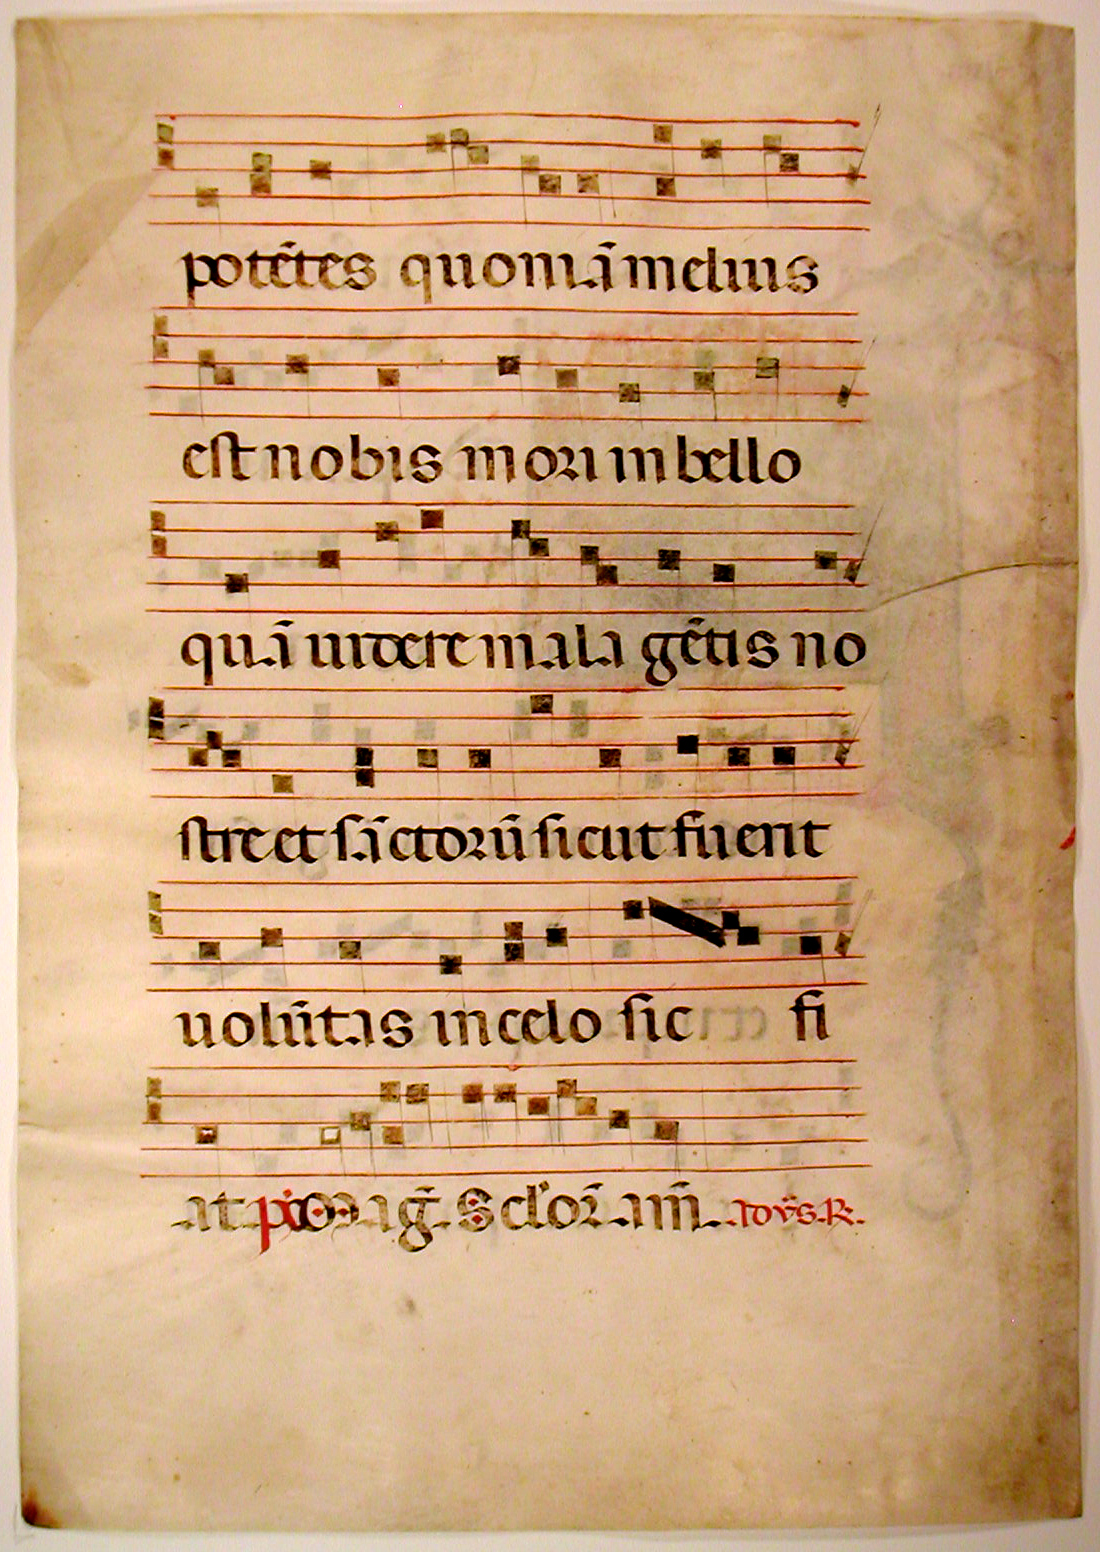 potētes quoniā melius
est nobis mori in bello
quā uidere mala gētis no
stre et sāctorū sicut fuerit
uolūtas in celo sic fi
at aḡ. Sclōr am̄.